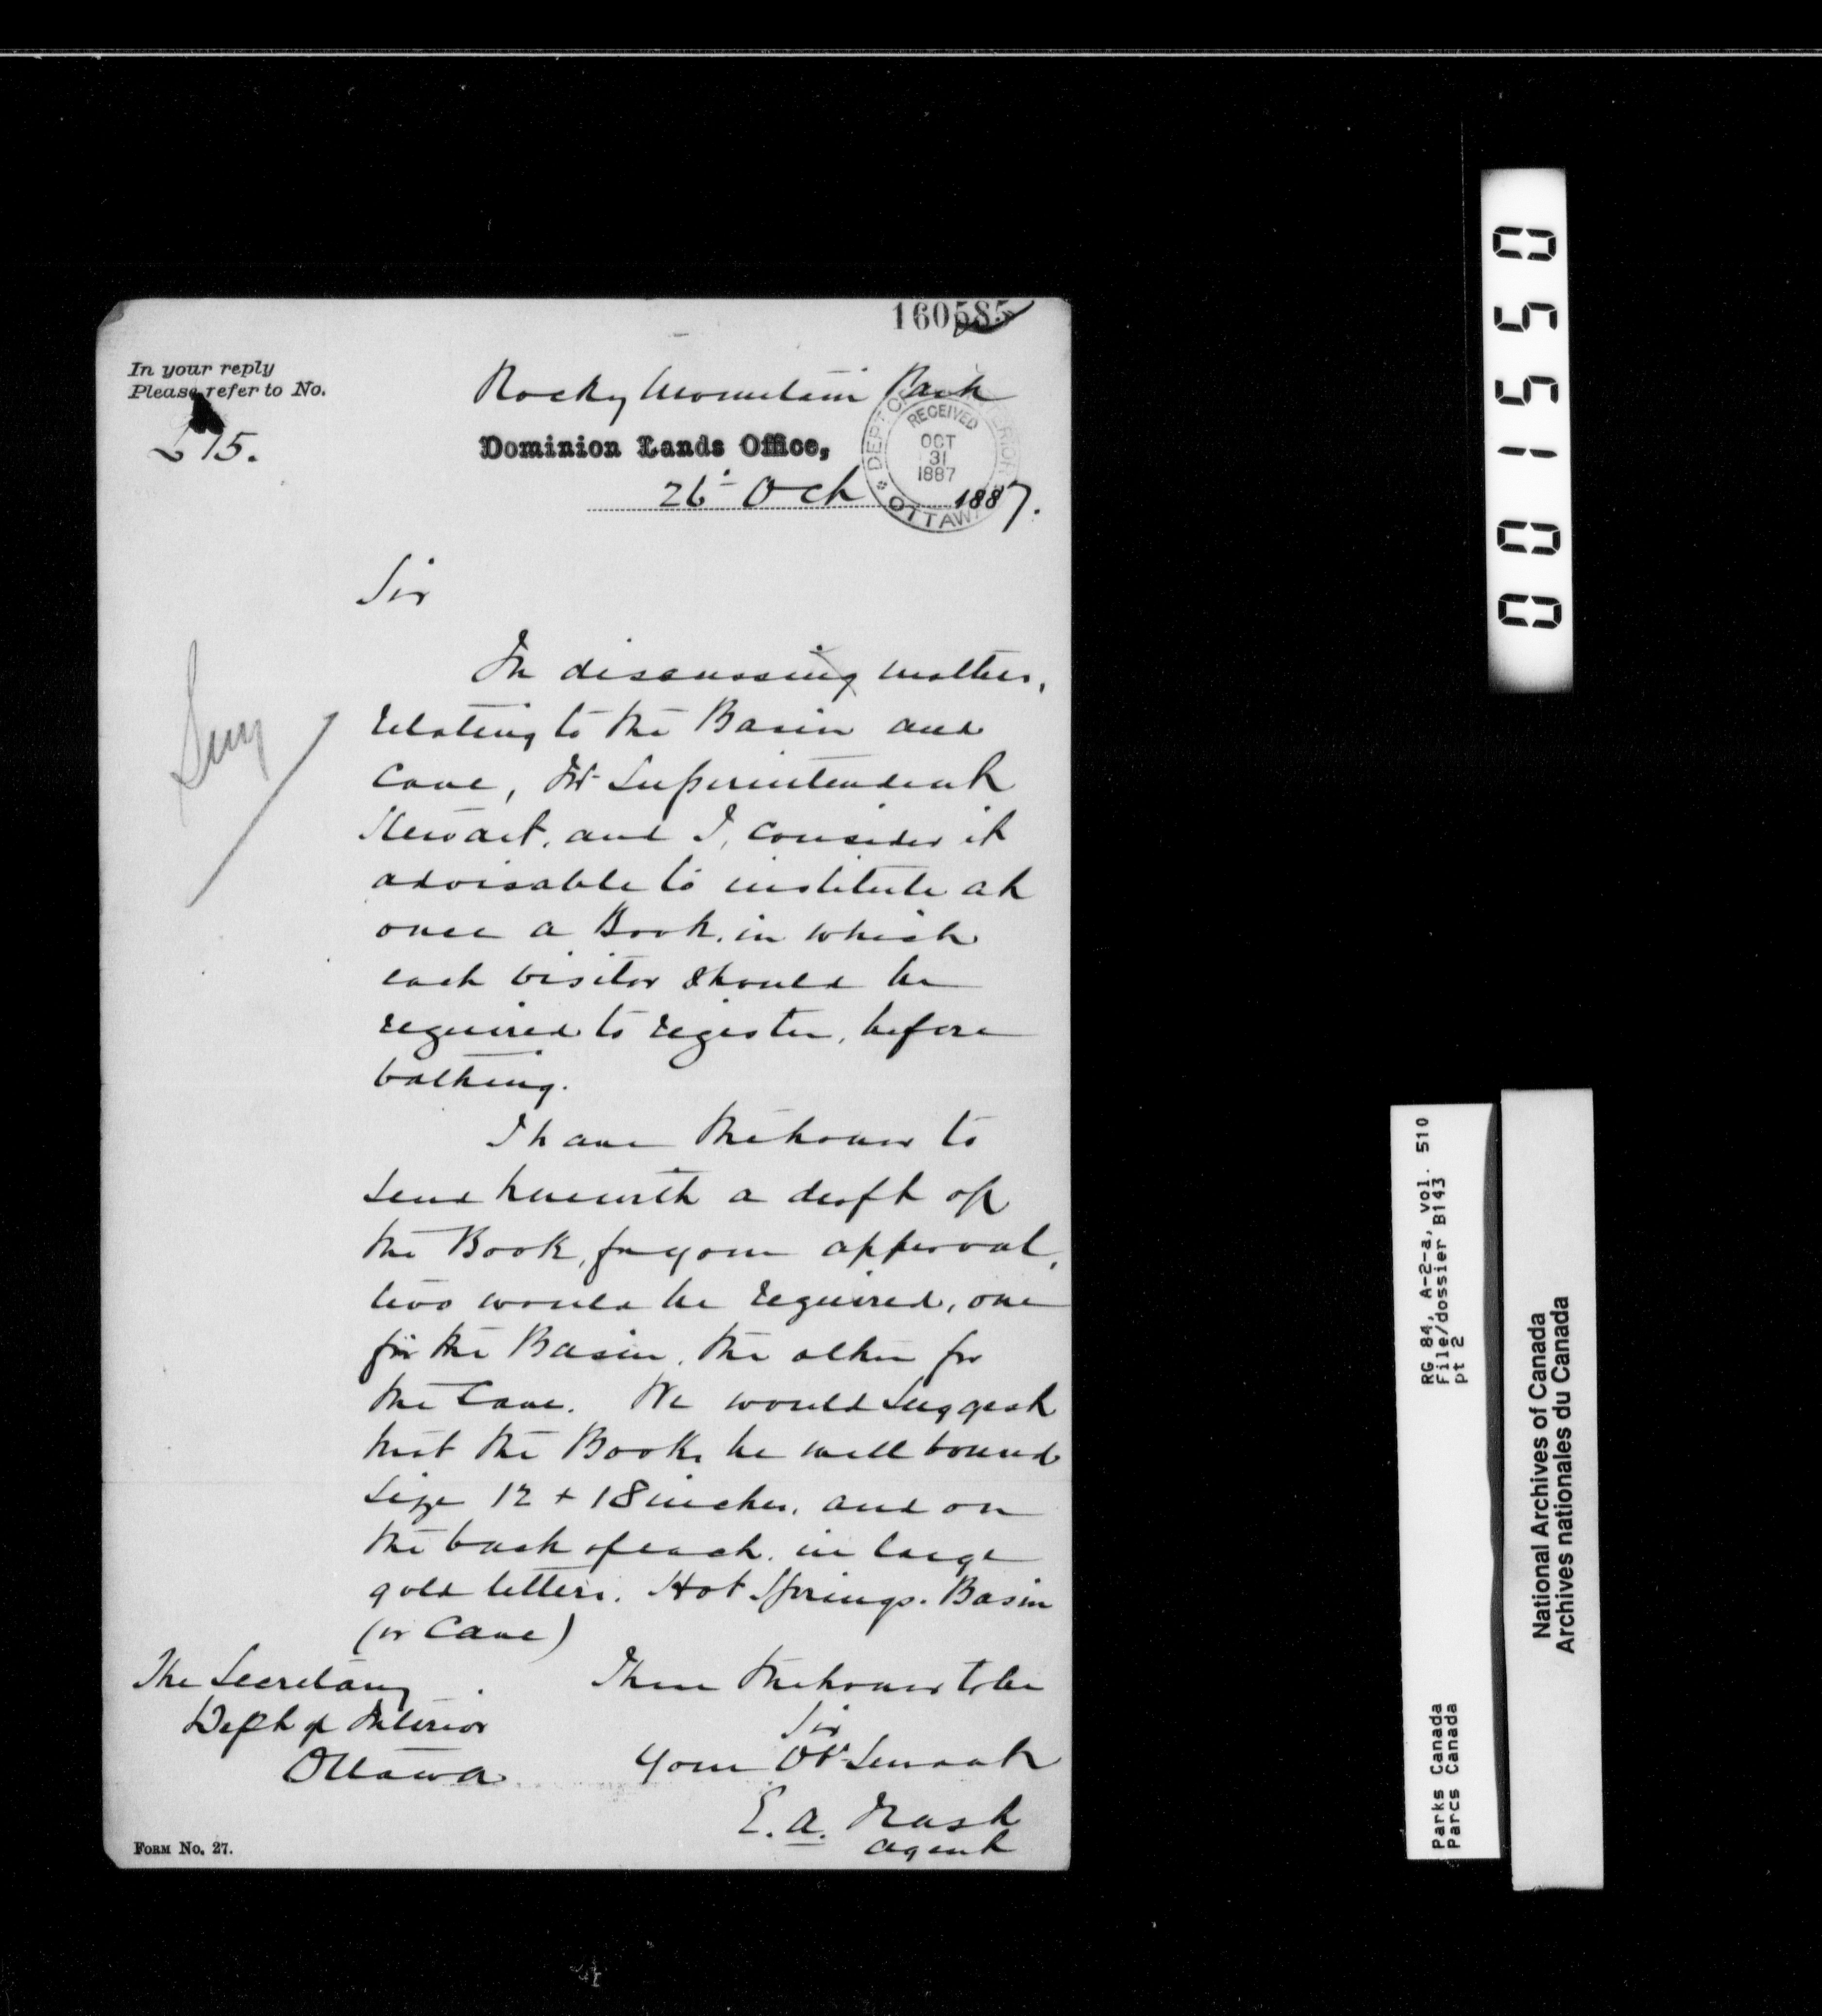 160585
In your reply
Please refer to No.
£15.
Rocky Mountain Park
Dominion Lands Office,
26 Oct 1887.
DEPT OF INTERIOR
RECEIVED
OCT
31
1887
OTTAWA
Sir
In discussing matters,
relating to the Basin and
Cave, Mr Superintendent
Stewart, and I, consider it
advisable to institute at
once a Book, in which
each visitor should be
required to register, before
bathing.
I have the honor to
send herewith a draft of
the Book, for your approval,
two would be required, one
for the Basin, the other for
the Cave. We would suggest
that the Books be well bound
size 12 + 18 inches, and on
the back of each, in large
gold letters. Hot Springs. Basin
(or Cave)
The Secretary
Dept of Interior
Ottawa
I have the honor to be
Sir
Your Obt Servant
E. A. Nash
agent
FORM No. 27.
001550
RG 84, A-2-a, vol. 510
File/dossier B143
pt 2
Parks Canada
Parcs Canada
National Archives of Canada
Archives nationales du Canada